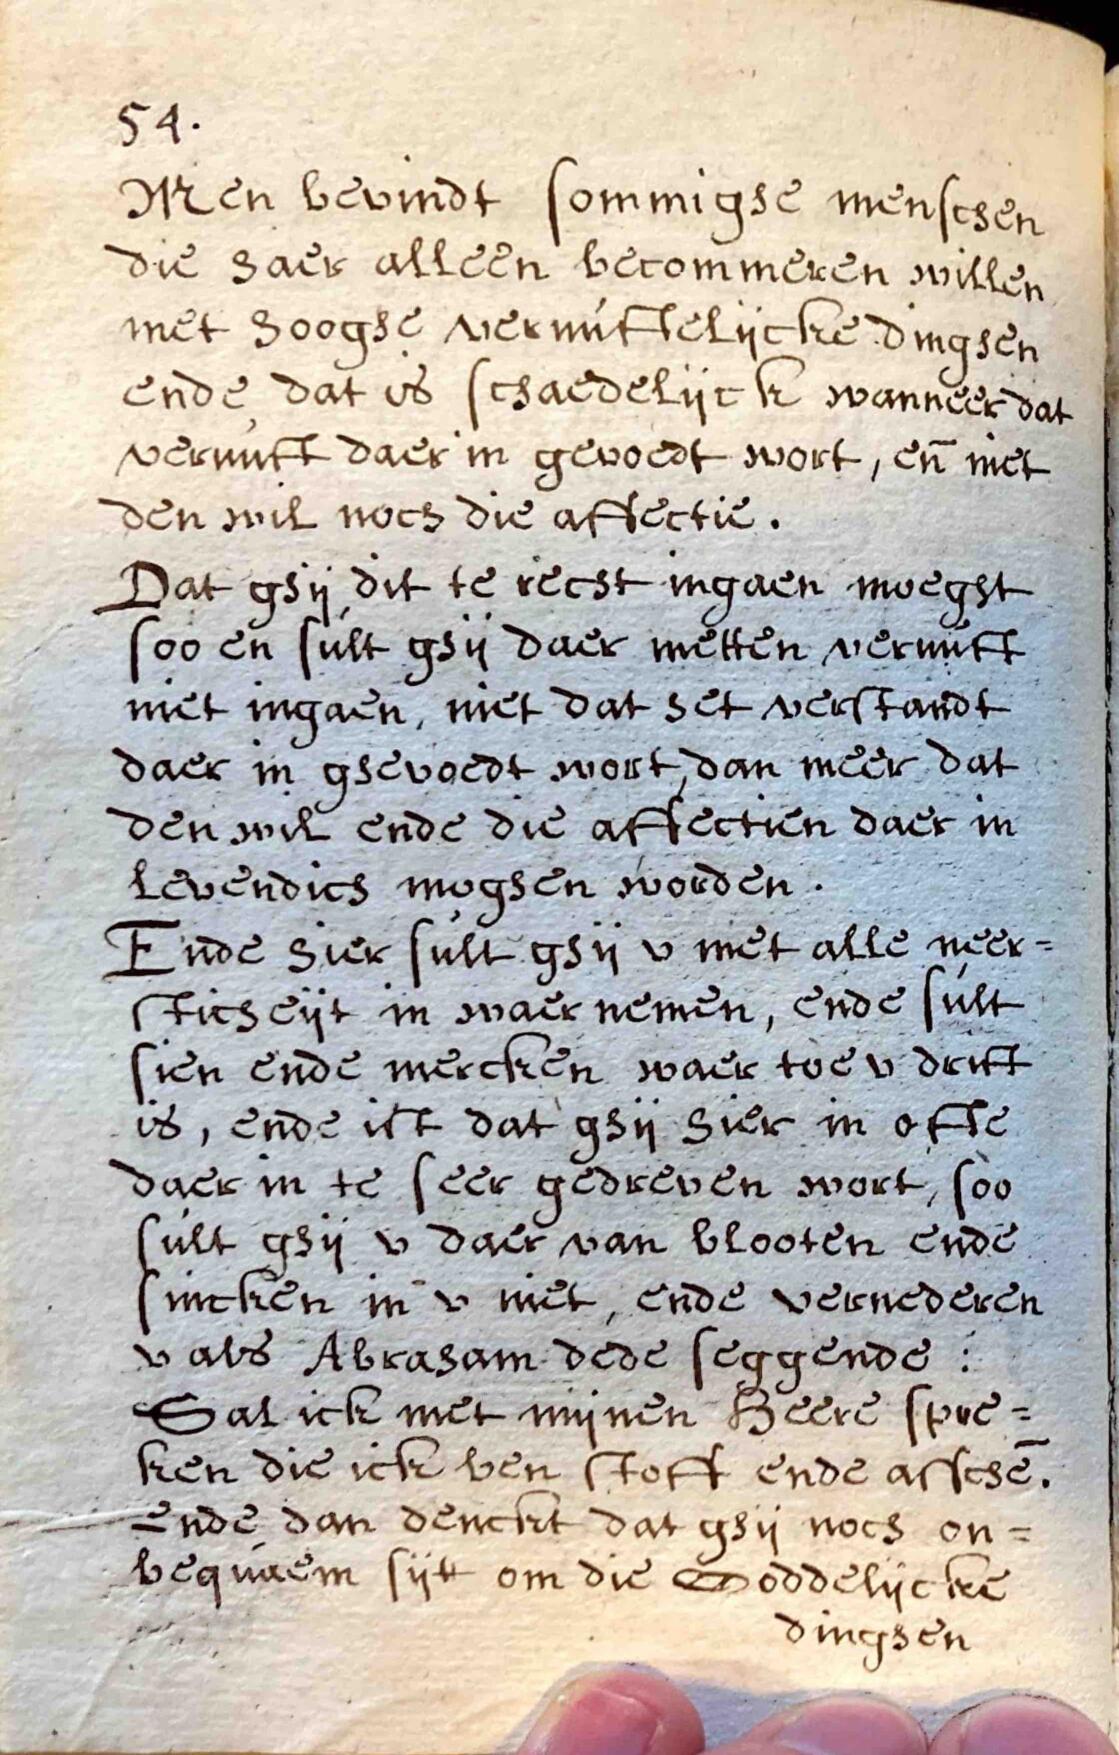 54.
Men bevindt sommighe menschen
die haer alleen becommeren willen
met hooghe vernúftelijcke dinghen
ende dat is schaedelijck wanneer dat
vernuft daer in gevoedt wort, en̄ niet
den wil noch die affectie.
Dat ghij dit te recht ingaen moeght
soo en súlt ghij daer metten vernúft
niet ingaen, niet dat het verstandt
daer in ghevoedt wort, dan meer dat
den wil ende die affectien daer in
levendich moghen worden.
Ende hier súlt ghij v met alle neer=
sticheijt in waer nemen, ende súlt
sien ende mercken waer toe v drift
is, ende ist dat ghij hier in ofte
daer in te seer gedreven wort, soo
súlt ghij v daer van blooten ende
sincken in v niet, ende vernederen
v als Abraham dede seggende :
Sal ick met mijnen Heere spre=
ken die ick ben stoff ende assche̅.
Ende dan denckt dat ghij noch on=
bequaem sijtt om die Goddelijcke
dinghen